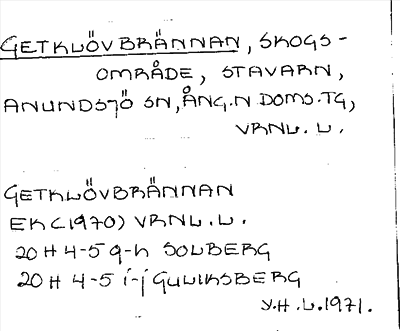 GETKLÖVBRÄNNAN, SKOGS-
OMRÅDE, STAVARN,
ANUNDSJÖ SN, ÅNG. N DOMS. TG,
VRNL. L.
GETKLÖVBRÄNNAN
EK (1970) VRNL. L.
20 H 4-5 g-h SOLBERG
20 H 4-5 i-j GULIKSBERG
Y. H. L. 1971.